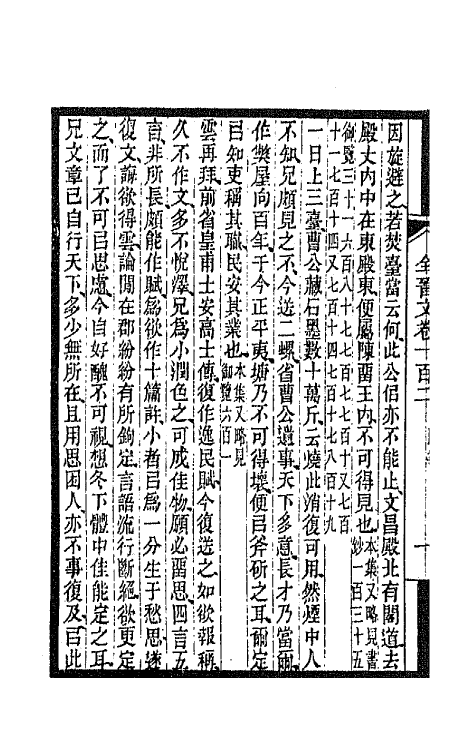 全晉文卷一百二　一
因旋避之若焚臺當云何此公佀亦不能止文昌殿北有閣道去
殿丈內中在東殿東便屬陳畱王內不可得見也本集又略見書鈔一百三十五
御覽三十一六百八十七七百七十又七百十一七百十四又七百十四七百十七八百十九
一日上三臺曹公藏石墨數十萬斤云燒此消復可用然煙中人
不知兄頗見之不今送二螺省曹公遺事天下多意長才乃當爾
作獘屋向百年于今正平夷塘乃不可得壞便㠯斧斫之耳爾定
㠯知吏稱其職民安其業也本集又略見御覽六百一
雲再拜前省皇甫士安高士傳復作逸民賦今復送之如欲報稱
久不作文多不悅澤兄爲小潤色之可成佳物願必畱思四言五
言非所長頗能作賦爲欲作十篇許小者㠯爲一分生于愁思遂
復文誨欲得雲論間在郡紛紛有所鉤定言語流行斷絕欲更定
之而了不可㠯思慮今自好醜不可視想冬下體中佳能定之耳
兄文章已自行天下多少無所在且用思困人亦不事復及㠯此